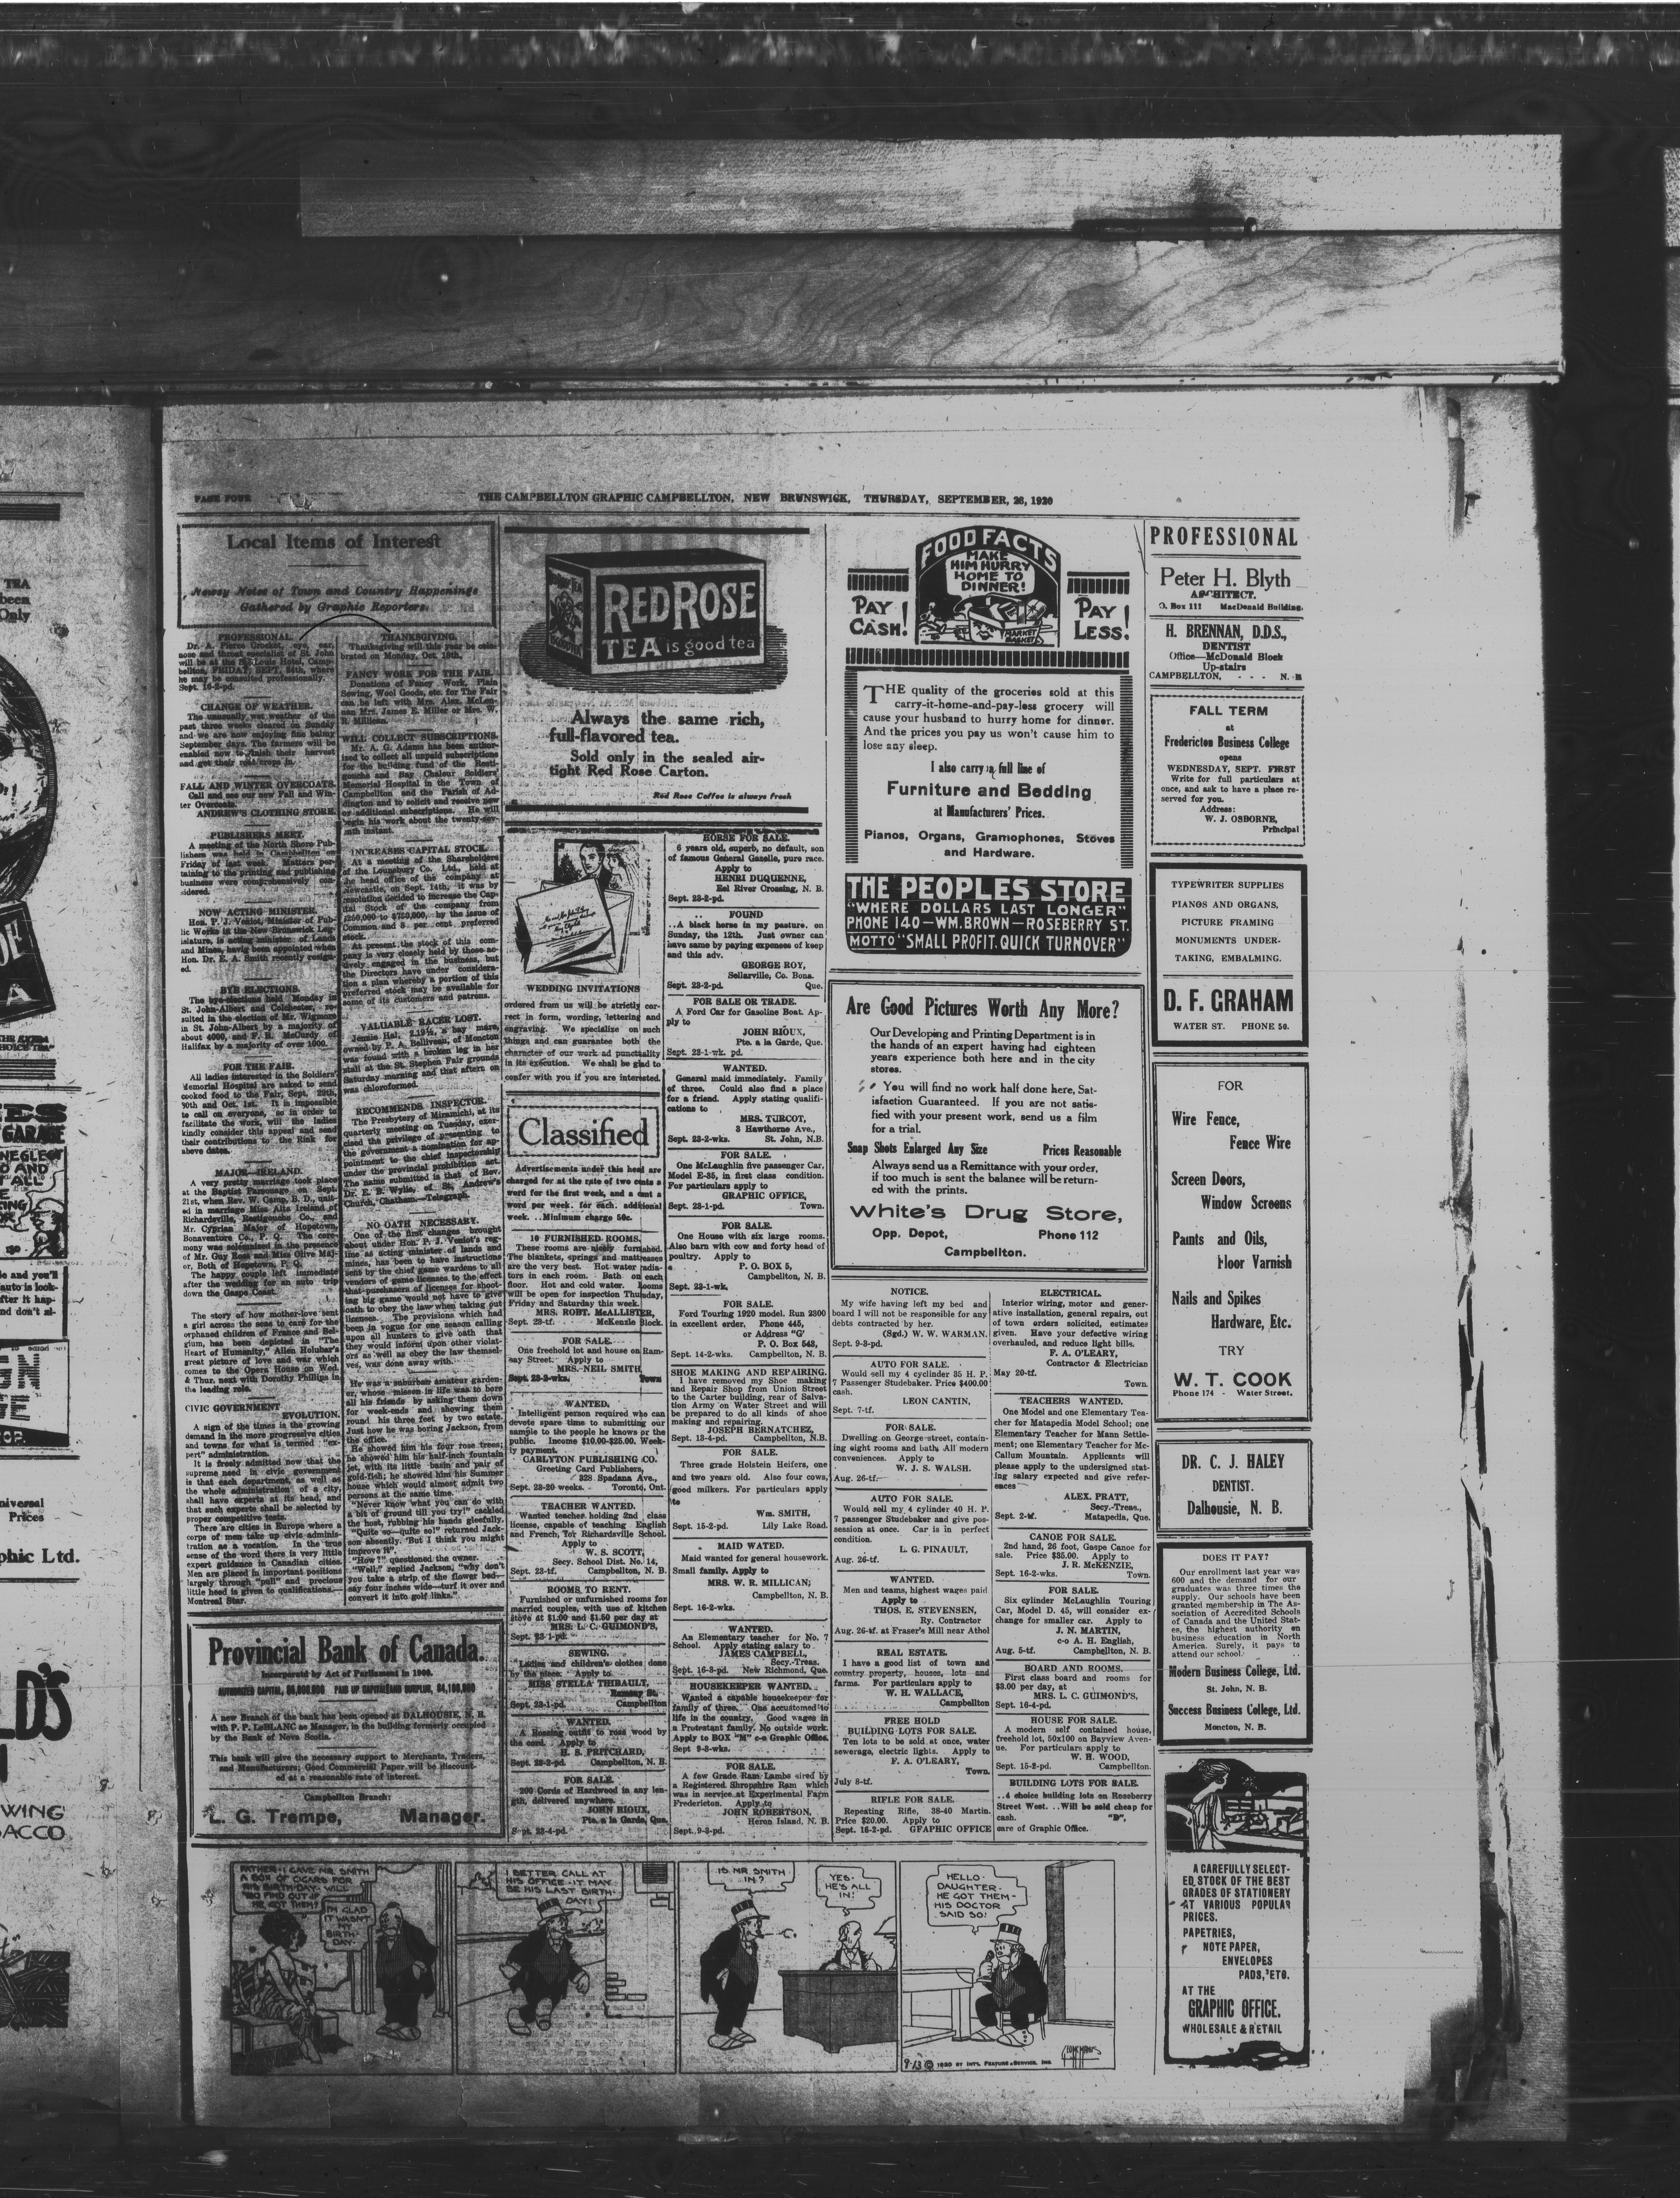 PAGE FOUR
THE CAMPBELLTON GRAPHIC CAMPBELLTON, NEW BRUNSWICK, THURSDAY, SEPTEMBER, 26, 1920
Local Items of Interest
Newsy Notes of Town and Country Happenings
Gathered by Graphic Reporters.
PROFESSIONAL.
Dr. A. Pierce Crocket, eye, ear,
nose and throat specialist of St. John
will be at the St. Louis Hotel, Camp-
bellton, FRIDAY, SEPT. 24th, where
he may be consulted professionally.
Sept. 16-2-pd.
CHANGE OF WEATHER.
The unusually wet weather of the
past three weeks cleared on Sunday
and we are now enjoying fine balmy
September days. The farmers will be
enabled now to finish their harvest
and get their root crops in.
FALL AND WINTER OVERCOATS.
Call and see our new Fall and Win-
ter Overcoats.
ANDREW'S CLOTHING STORE.
PUBLISHERS MEET.
A meeting of the North Shore Pub-
lishers was held in Campbellton on
Friday of last week. Matters per-
taining to the printing and publishing
business were comprehensively con-
sidered.
NOW ACTING MINISTER.
Hon. P. J. Veniot, Minister of Pub-
lic Works in the New Brunswick Leg-
islature, is acting minister of Lands
and Mines, havig been appointed when
Hon. Dr. E. A. Smith recently resign-
ed.
BYE ELECTIONS.
The bye-elections held Monday in
St. John-Albert and Colchester, re-
sulted in the election of Mr. Wigmore
in St. John-Albert by a majority of
about 4000, and F. B. McCurdy, of
Halifax by a majority of over 1000.
FOR THE FAIR.
All ladies interested in the Soldiers'
Memorial Hospital are asked to send
cooked food to the Fair, Sept. 29th,
30th and Oct. 1st. It is impossible
to call on everyone, so in order to
facilitate the work, will the ladies
kindly consider this appeal and send
their contributions to the Rink for
above dates.
MAJOR—IRELAND.
A very pretty marriage took place
at the Baptist Parsonage on Sept.
21st, when Rev. W. Camp, B. D., unit-
ed in marriage Miss Alta Ireland of
Richardsville, Restigouche Co., and
Mr. Cyprian Major of Hopetown,
Bonaventure Co., P. Q. The cere-
mony was solemnized in the presence
of Mr. Guy Ross and Miss Olive Maj-
or, Both of Hopetown, P. Q.
The happy couple left immediate
after the wedding for an auto trip
down the Gaspe Coast.
The story of how mother-love sent
a girl across the seas to care for the
orphaned children of France and Bel-
gium, has been depicted in "The
Heart of Humanity," Allen Holubar's
great picture of love and war which
comes to the Opera House on Wed.
& Thur. next with Dorothy Phillips in
the leading role.
CIVIC GOVERNMENT
EVOLUTION.
A sign of the times is the growing
demand in the more progressive cities
and towns for what is termed "ex-
pert" administration.
It is freely admitted now that the
supreme need in civic government
is that each department, as well as
the whole administration of a city,
shall have experts at its head, and
that such experts shall be selected by
proper competitive tests.
There are cities in Europe where a
corps of men take up civic adminis-
tration as a vocation. In the true
sense of the word there is very little
expert guidance in Canadian cities.
Men are placed in important positions
largely through "pull" and precious
little heed is given to qualifications.—
Montreal Star.
THANKSGIVING.
Thanksgiving will this year be cele-
brated on Monday, Oct. 18th.
FANCY WORK FOR THE FAIR.
Donations of Fancy Work, Plain
Sewing, Wool Goods, etc. for The Fair
can be left with Mrs. Alex. McLen-
nan Mrs. James E. Miller or Mrs. W.
R. Millican.
WILL COLLECT SUBSCRIPTIONS.
Mr. A. G. Adams has been author-
ized to collect all unpaid subscriptions
for the building fund of the Resti-
gouche and Bay Chaleur Soldiers'
Memorial Hospital in the Town of
Campbellton and the Parish of Ad-
dington and to solicit and receive new
or additional subscriptions. He will
begin his work about the twenty-sev-
enth instant.
INCREASES CAPITAL STOCK.
At a meeting of the Shareholders
of the Lounsbury Co. Ltd., held at
the head office of the company at
Newcastle, on Sept. 14th, it was by
resolution decided to increase the Cap-
ital Stock of the company from
$250,000 to $750,000, by the issue of
Common and 8 per cent preferred
stock.
At present the stock of this com-
pany is very closely held by those ac-
tively engaged in the business, but
the Directors have under considera-
tion a plan whereby a portion of this
preferred stock may be available for
some of its customers and patrons.
VALUABLE RACER LOST.
Jennie Hal, 2.19¼, a bay mare,
owned by P. A. Belliveau, of Moncton
was found with a broken leg in her
stall at the St. Stephen Fair grounds
Saturday morning and that aftern on
was chloroformed.
RECOMMENDS INSPECTOR.
The Presbytery of Miramichi, at its
quarterly meeting on Tuesday, exer-
cised the privilege of presenting to
the government a nomination for ap-
pointment to the chief inspectorship
under the provincial prohibition act.
The name submitted is that of Rev.
Dr. E. B. Wylie, of St. Andrew's
Church, Chatham.—Telegraph.
NO OATH NECESSARY.
One of the first changes brought
about under Hon. P. J. Veniot's reg-
ime as acting minister of lands and
mines, has been to have instructions
sent by the chief game wardens to all
vendors of game licenses to the effect
that purchasers of licenses for shoot-
ing big game would not have to give
oath to obey the law when taking out
licenses. The provisions which had
been in vogue for one season calling
upon all hunters to give oath that
they would inform upon other violat-
ors as well as obey the law themsel-
ves, was done away with.
He was a suburban amateur garden-
er, whose misson in life was to bore
all his friends by asking them down
for week-ends and showing them
round his three feet by two estate.
Just how he was boring Jackson, from
the office.
He showed him his four rose trees;
he showed him his half-inch fountain
jet, with its little basin and pair of
gold-fish; he showed him his Summer
house which would almost admit two
persons at the same time.
"Never know what you can do with
a bit of ground till you try!" cackled
the host, rubbing his hands gleefully.
"Quite so—quite so!" returned Jack-
son absently. "But I think you might
improve it".
"How?" questioned the owner.
"Well," replied Jackson, "why don't
you take a strip of the flower bed—
say four inches wide—turf it over and
convert it into golf links."
Provincial Bank of Canada.
Incorporated by Act of Parliament in 1900.
AUTHORIZED CAPITAL, $5,000,000 PAID UP CAPITAL AND SURPLUS, $4,100,000
A new Branch of the bank has been opened at DALHOUSIE, N. B.
with P. P. LeBLANC as Manager, in the building formerly occupied
by the Bank of Nova Scotia.
This bank will give the necessary support to Merchants, Traders,
and Manufacturers; Good Commercial Paper will be discount-
ed at a reasonable rate of interest.
Campbellton Branch:
L. G. Trempe, Manager.
RED ROSE
TEA is good tea
Always the same rich,
full-flavored tea.
Sold only in the sealed air-
tight Red Rose Carton.
Red Rose Coffee is always fresh
WEDDING INVITATIONS
ordered from us will be strictly cor-
rect in form, wording, lettering and
engraving. We specialize on such
things and can guarantee both the
character of our work ad punctuality
in its execution. We shall be glad to
confer with you if you are interested.
Classified
Advertisements under this head are
charged for at the rate of two cents a
word for the first week, and a cent a
word per week. for each. additional
week. ..Minimum charge 50c.
10 FURNISHED ROOMS.
These rooms are nicely furnished.
The blankets, springs and mattresses
are the very best. Hot water radia-
tors in each room. Bath on each
floor. Hot and cold water. Rooms
will be open for inspection Thursday,
Friday and Saturday this week.
MRS. ROBT. McALLISTER,
Sept. 23-tf. McKenzie Block.
FOR SALE.
One freehold lot and house on Ram-
say Street. Apply to
MRS. NEIL SMITH,
Sept. 23-2-wks. Town
WANTED.
Intelligent person required who can
devote spare time to submitting our
sample to the people he knows or the
public. Income $10.00-$25.00. Week-
ly payment.
CARLYTON PUBLISHING CO.
Greeting Card Publishers,
328 Spadana Ave.,
Sept. 23-20 weeks. Toronto, Ont.
TEACHER WANTED.
Wanted teacher holding 2nd class
license, capable of teaching English
and French, for Richardsville School.
Apply to
W. S. SCOTT,
Secy. School Dist. No. 14,
Sept. 23-tf. Campbellton, N. B.
ROOMS TO RENT.
Furnished or unfurnished rooms for
married couples, with use of kitchen
stove at $1.00 and $1.50 per day at
MRS. L. C. GUIMOND'S,
Sept. 23-1-pd.
SEWING.
Ladies and children's clothes done
by the piece. Apply to
MISS STELLA THIBAULT,
Ramsay St.
Sept. 23-1-pd. Campbellton
WANTED.
A Rossing outfit to ross wood by
the cord. Apply to
H. S. PRITCHARD,
Sept. 23-2-pd. Campbellton, N. B.
FOR SALE.
200 Cords of Hardwood in any len-
gth, delivered anywhere.
JOHN RIOUX,
Pte. a la Garde, Que.
Sept. 23-4-pd.
HORSE FOR SALE.
6 years old, superb, no default, son
of famous General Gazelle, pure race.
Apply to
HENRI DUQUENNE,
Eel River Crossing, N. B.
Sept. 23-2-pd.
FOUND
..A black horse in my pasture. on
Sunday, the 12th. Just owner can
have same by paying expenses of keep
and this adv.
GEORGE ROY,
Sellarville, Co. Bona.
Sept. 23-2-pd. Que.
FOR SALE OR TRADE.
A Ford Car for Gasoline Boat. Ap-
ply to
JOHN RIOUX,
Pte. a la Garde, Que.
Sept. 23-1-wk. pd.
WANTED.
General maid immediately. Family
of three. Could also find a place
for a friend. Apply stating qualifi-
cations to
MRS. TURCOT,
3 Hawthorne Ave.,
Sept. 23-2-wks. St. John, N.B.
FOR SALE.
One McLaughlin five passenger Car,
Model E-35, in first class condition.
For particulars apply to
GRAPHIC OFFICE,
Sept. 23-1-pd. Town.
FOR SALE.
One House with six large rooms.
Also barn with cow and forty head of
poultry. Apply to
P. O. BOX 5,
Campbellton, N. B.
Sept. 23-1-wk.
FOR SALE.
Ford Touring 1920 model. Run 2800
in excellent order. Phone 445,
or Address "G"
P. O. Box 548,
Sept. 14-2-wks. Campbellton, N. B.
SHOE MAKING AND REPAIRING.
I have removed my Shoe making
and Repair Shop from Union Street
to the Carter building, rear of Salva-
tion Army on Water Street and will
be prepared to do all kinds of shoe
making and repairing.
JOSEPH BERNATCHEZ,
Sept. 13-4-pd. Campbellton, N.B.
FOR SALE.
Three grade Holstein Heifers, one
and two years old. Also four cows,
good milkers. For particulars apply
to
Wm. SMITH,
Sept. 15-2-pd. Lily Lake Road.
MAID WATED.
Maid wanted for general housework.
Small family. Apply to
MRS. W. R. MILLICAN;
Campbellton, N. B.
Sept. 16-2-wks.
WANTED.
An Elementary teacher for No. 7
School. Apply stating salary to
JAMES CAMPBELL,
Secy.-Treas.
Sept. 16-3-pd. New Richmond, Que.
HOUSEKEEPER WANTED.
Wanted a capable housekeeper for
family of three. One accustomed to
life in the country. Good wages in
a Protestant family. No outside work.
Apply to BOX "M" c-o Graphic Office.
Sept 9-3-wks.
FOR SALE.
A few Grade Ram Lambs sired by
a Registered Shropshire Ram which
was in service at Experimental Farm
Fredericton. Apply to
JOHN ROBERTSON,
Heron Island, N. B.
Sept. 9-3-pd.
FOOD FACTS
MAKE
HIM HURRY
HOME TO
DINNER!
MARKET
BASKET
PAY
CASH!
PAY
LESS!
THE quality of the groceries sold at this
carry-it-home-and-pay-less grocery will
cause your husband to hurry home for dinner.
And the prices you pay us won't cause him to
lose any sleep.
I also carry in full line of
Furniture and Bedding
at Manufacturers' Prices.
Pianos, Organs, Gramophones, Stoves
and Hardware.
THE PEOPLES STORE
"WHERE DOLLARS LAST LONGER"
PHONE 140—WM. BROWN—ROSEBERRY ST.
MOTTO "SMALL PROFIT. QUICK TURNOVER"
Are Good Pictures Worth Any More?
Our Developing and Printing Department is in
the hands of an expert having had eighteen
years experience both here and in the city
stores.
You will find no work half done here, Sat-
isfaction Guaranteed. If you are not satis-
fied with your present work, send us a film
for a trial.
Snap Shots Enlarged Any Size Prices Reasonable
Always send us a Remittance with your order,
if too much is sent the balance will be return-
ed with the prints.
White's Drug Store,
Opp. Depot, Phone 112
Campbellton.
NOTICE.
My wife having left my bed and
board I will not be responsible for any
debts contracted by her.
(Sgd.) W. W. WARMAN.
Sept. 9-3-pd.
AUTO FOR SALE.
Would sell my 4 cylinder 35 H. P.
7 Passenger Studebaker. Price $400.00
cash.
LEON CANTIN,
Sept. 7-tf.
FOR SALE.
Dwelling on George street, contain-
ing eight rooms and bath. All modern
conveniences. Apply to
W. J. S. WALSH.
Aug. 26-tf.
AUTO FOR SALE.
Would sell my 4 cylinder 40 H. P.
7 passenger Studebaker and give pos-
session at once. Car is in perfect
condition.
L. G. PINAULT,
Aug. 26-tf.
WANTED.
Men and teams, highest wages paid
Apply to
THOS. E. STEVENSEN,
Ry. Contractor
Aug. 26-tf. at Fraser's Mill near Athol
REAL ESTATE.
I have a good list of town and
country property, houses, lots and
farms. For particulars apply to
W. H. WALLACE,
Campbellton
FREE HOLD
BUILDING LOTS FOR SALE.
Ten lots to be sold at once, water
sewerage, electric lights. Apply to
F. A. O'LEARY,
Town.
July 8-tf.
RIFLE FOR SALE.
Repeating Rifle, 38-40 Martin.
Price $20.00. Apply to
Sept. 16-2-pd. GRAPHIC OFFICE
ELECTRICAL.
Interior wiring, motor and gener-
ative installation, general repairs, out
of town orders solicited, estimates
given. Have your defective wiring
overhauled, and reduce light bills.
F. A. O'LEARY,
Contractor & Electrician
May 20-tf.
Town.
TEACHERS WANTED.
One Model and one Elementary Tea-
cher for Matapedia Model School; one
Elementary Teacher for Mann Settle-
ment; one Elementary Teacher for Mc-
Callum Mountain. Applicants will
please apply to the undersigned stat-
ing salary expected and give refer-
ences
ALEX. PRATT,
Secy.-Treas.,
Sept. 2-tf. Matapedia, Que.
CANOE FOR SALE.
2nd hand, 26 foot, Gaspe Canoe for
sale. Price $85.00. Apply to
J. R. McKENZIE,
Sept. 16-2-wks. Town.
FOR SALE.
Six cylinder McLaughlin Touring
Car, Model D. 45, will consider ex-
change for smaller car. Apply to
J. N. MARTIN,
c-o A. H. English,
Aug. 5-tf. Campbellton, N. B.
BOARD AND ROOMS.
First class board and rooms for
$3.00 per day, at
MRS. L. C. GUIMOND'S,
Sept. 16-4-pd.
HOUSE FOR SALE.
A modern self contained house,
freehold lot, 50x100 on Bayview Aven-
ue. For particulars apply to
W. H. WOOD,
Sept. 15-3-pd. Campbellton.
BUILDING LOTS FOR SALE.
..4 choice building lots on Roseberry
Street West. ..Will be sold cheap for
cash. "B",
care of Graphic Office.
PROFESSIONAL
Peter H. Blyth
ARCHITECT.
O. Box 111 MacDonald Building.
H. BRENNAN, D.D.S.,
DENTIST
Office—McDonald Block
Up-stairs
CAMPBELLTON, - - - N. B
FALL TERM
at
Fredericton Business College
opens
WEDNESDAY, SEPT. FIRST
Write for full particulars at
once, and ask to have a place re-
served for you.
Address:
W. J. OSBORNE,
Principal
TYPEWRITER SUPPLIES
PIANOS AND ORGANS,
PICTURE FRAMING
MONUMENTS UNDER-
TAKING, EMBALMING.
D. F. GRAHAM
WATER ST. PHONE 50.
FOR
Wire Fence,
Fence Wire
Screen Doors,
Window Screens
Paints and Oils,
Floor Varnish
Nails and Spikes
Hardware, Etc.
TRY
W. T. COOK
Phone 174 - Water Street.
DR. C. J. HALEY
DENTIST.
Dalhousie, N. B.
DOES IT PAY?
Our enrollment last year was
600 and the demand for our
graduates was three times the
supply. Our schools have been
granted membership in The As-
sociation of Accredited Schools
of Canada and the United Stat-
es, the highest authority on
business education in North
America. Surely, it pays to
attend our school.
Modern Business College, Ltd.
St. John, N. B.
Success Business College, Ltd.
Moncton, N. B.
A CAREFULLY SELECT-
ED STOCK OF THE BEST
GRADES OF STATIONERY
AT VARIOUS POPULAR
PRICES.
PAPETRIES,
NOTE PAPER,
ENVELOPES
PADS, ETC.
AT THE
GRAPHIC OFFICE.
WHOLESALE & RETAIL
FATHER—I GAVE MR. SMITH
A BOX OF CIGARS FOR
HIS BIRTH-DAY—WILL
YOU FIND OUT IF
HE GOT THEM?
I'M GLAD
IT WASN'T
MY
BIRTH-
DAY—
I BETTER CALL AT
HIS OFFICE—IT MAY
BE HIS LAST BIRTH-
DAY!
IS MR. SMITH
IN?
YES-
HE'S ALL
IN!
HELLO-
DAUGHTER-
HE GOT THEM-
HIS DOCTOR
SAID SO!
9-13 © 1920 BY INT'L FEATURE SERVICE, INC.
TEA
been
Only
GARAGE
NEGLECT
AND
ALL
Universal
Prices
phic Ltd.
LD'S
WING
BACCO